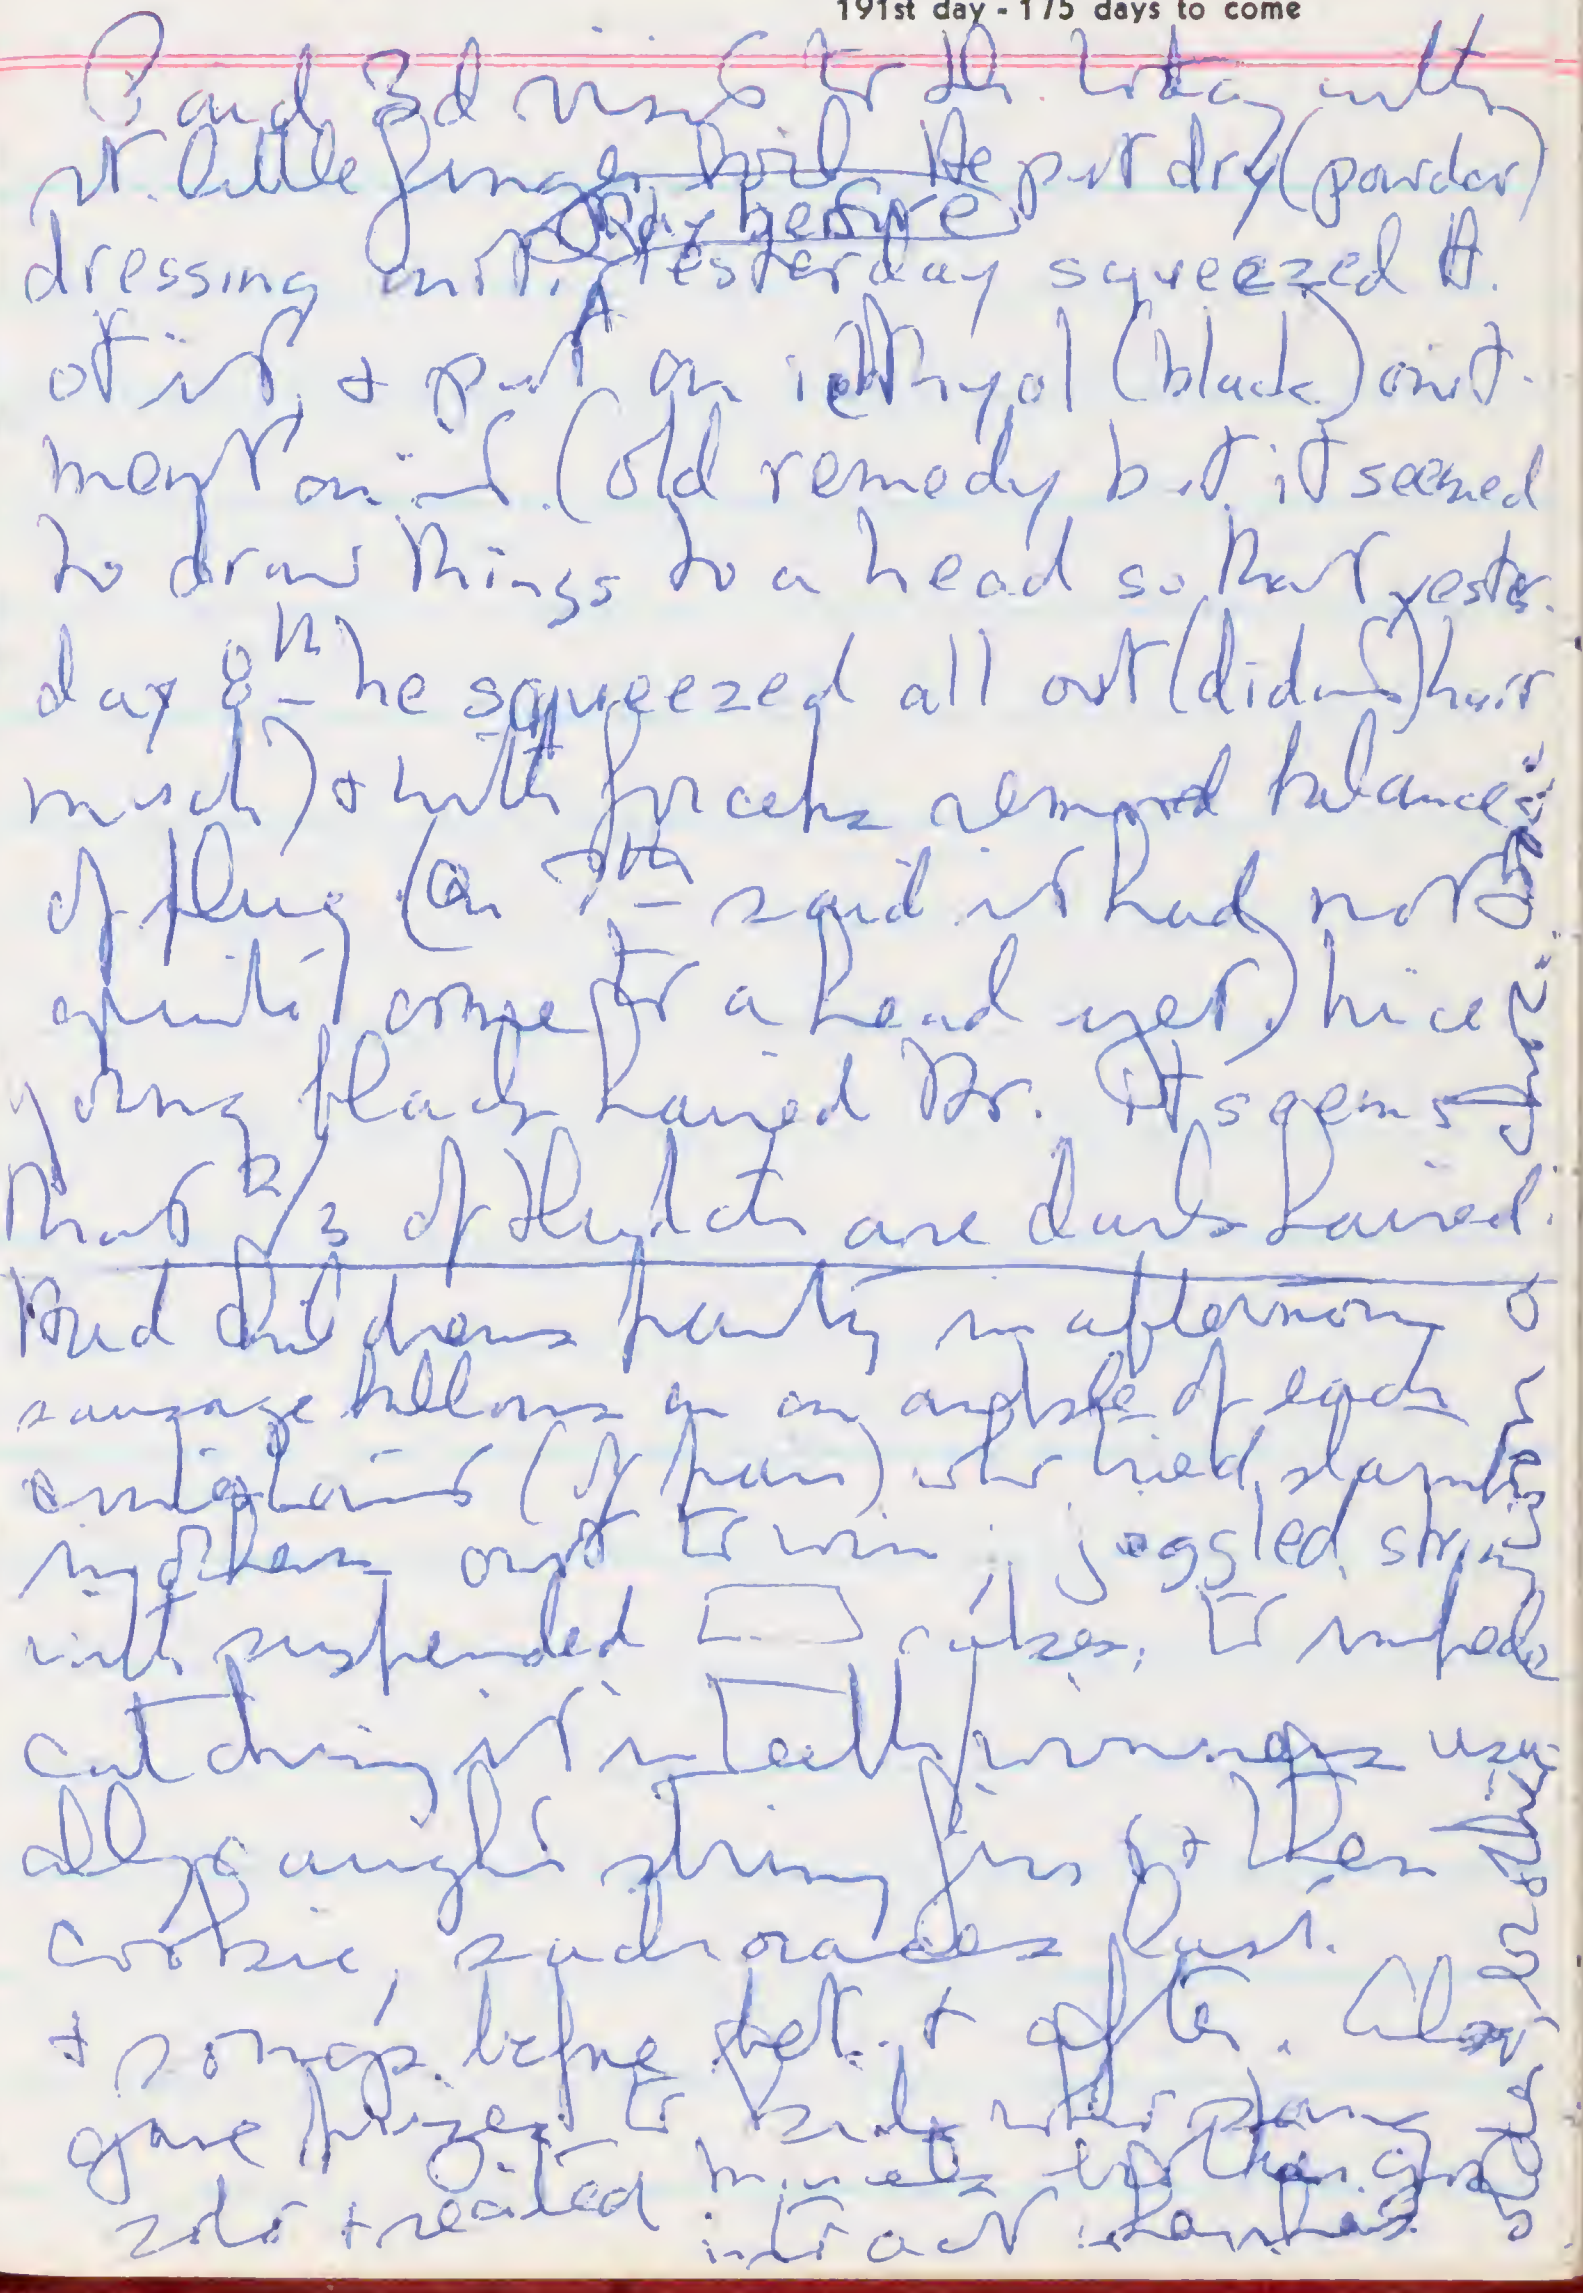 191st day - 175 days to come
Paid 3d visit to Dr. today with
rt. little finger boil He put dry (powder)
Day before
dressing on it. Yesterday squeezed H.
of it, + put on icthyol (black) oint-
ment on it. (Old remedy but it seemed
to draw things to a head so that yester-
day 8th he squeezed all out (didn't) hurt
much) + with forceps removed balance
of plug (on 7th said it had not
quite come to a head yet.) Nice
young black haired Dr. It seems
that 2/3 of the Dutch are dark haired.
Had childrens party in afternoon
sausage balloons on an ankle of each
contestant (of pair) who tried stamping
others out to win; joggled string
with suspended cakes, to impede
catching it in teeth, winners usu-
ally caught string first + then
cookie, sack races last.
+ songs before, bet. + after. Also
gave prizes to kids who sang
solo + recited